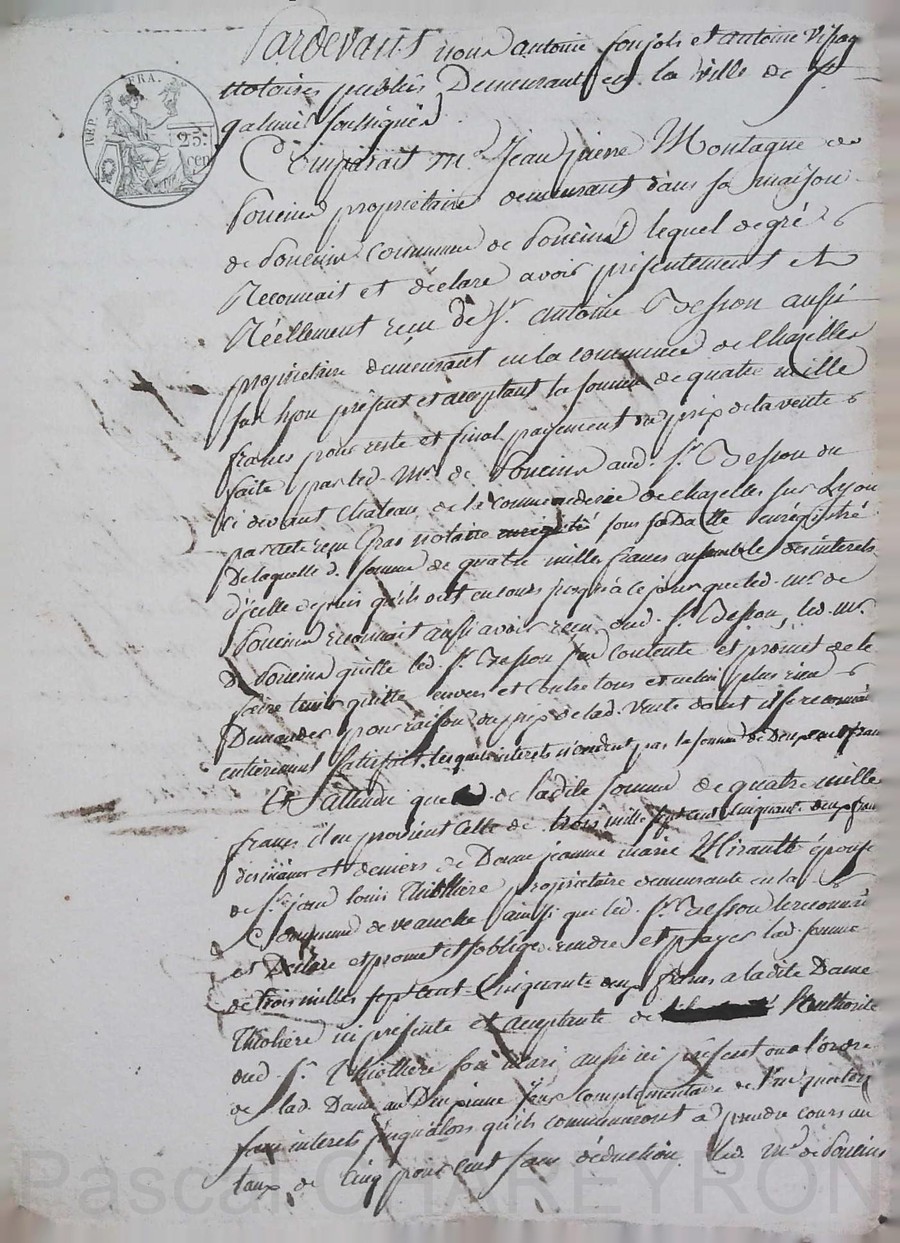 REP. FRA. 25 cen
Pardevant nous antoine et antoine
notaires publics Demeurant en la ville de St
galmier soussignés
Comparait Mr. Jean pierre Montagne de
Poncins propriétaire demeurant dans sa maison
de Poncins Commune de Poncins lequel de gré
Reconnait et déclare avoir présentement et
Réellement reçu de Sr. antoine Besson aussi
propriétaire demeurant en la commune de Chazelles
sur Lyon présent et acceptant la somme de quatre mille
francs pour reste et final payement du prix de la vente
faite par led. Mr. de Poncins aud. Sr. Besson du
ci devant Chateau de la Commanderie de Chazelles sur Lyon
par acte reçu Gras notaire sous sa Datte enrégistré
De laquelle d. somme de quatre mille francs ensemble des interets
d'icelle depuis qu'ils ont en cours jusqu'à ce jour que led. mr. de
Poncins reconnait aussi avoir reçu dud. Sr. Besson, led. mr.
de Poncins quitte led. Sr. Besson s'en contente et promet de le
faire tenir quitte envers et contre tous et ne lui plus rien
Demander pour raison du prix de lad. vente dont il se reconnait
entièrement satisfait. lesquels interets n'excedent pas la somme de Deux cent francs
Et attendu que de ladite somme de quatre mille
francs il en provient celle de trois mille sept cent cinquante deux francs
des mains et deniers de Dame jeanne marie Mirault épouse
de Sr. jean louis Thiollière propriétaire demeurante en la
Commune de veauche ainsi que led. Sr. Besson le reconnait
et Déclare et promet et s'oblige rendre et payer lad. somme
de trois milles sept cent cinquante deux francs a ladite Dame
Thiolière ici présente et acceptante de l'authorité
dud. Sr. Thiollière son mari aussi ici présent ou a l'ordre
de lad. Dame au Deuxieme jour complementaire de l'an quatorze
sans interets jusqu'alors qu'ils commenceront à prendre cours au
taux de Cinq pour cent sans déduction. led. mr. de Poncins
Pascal CHAREYRON